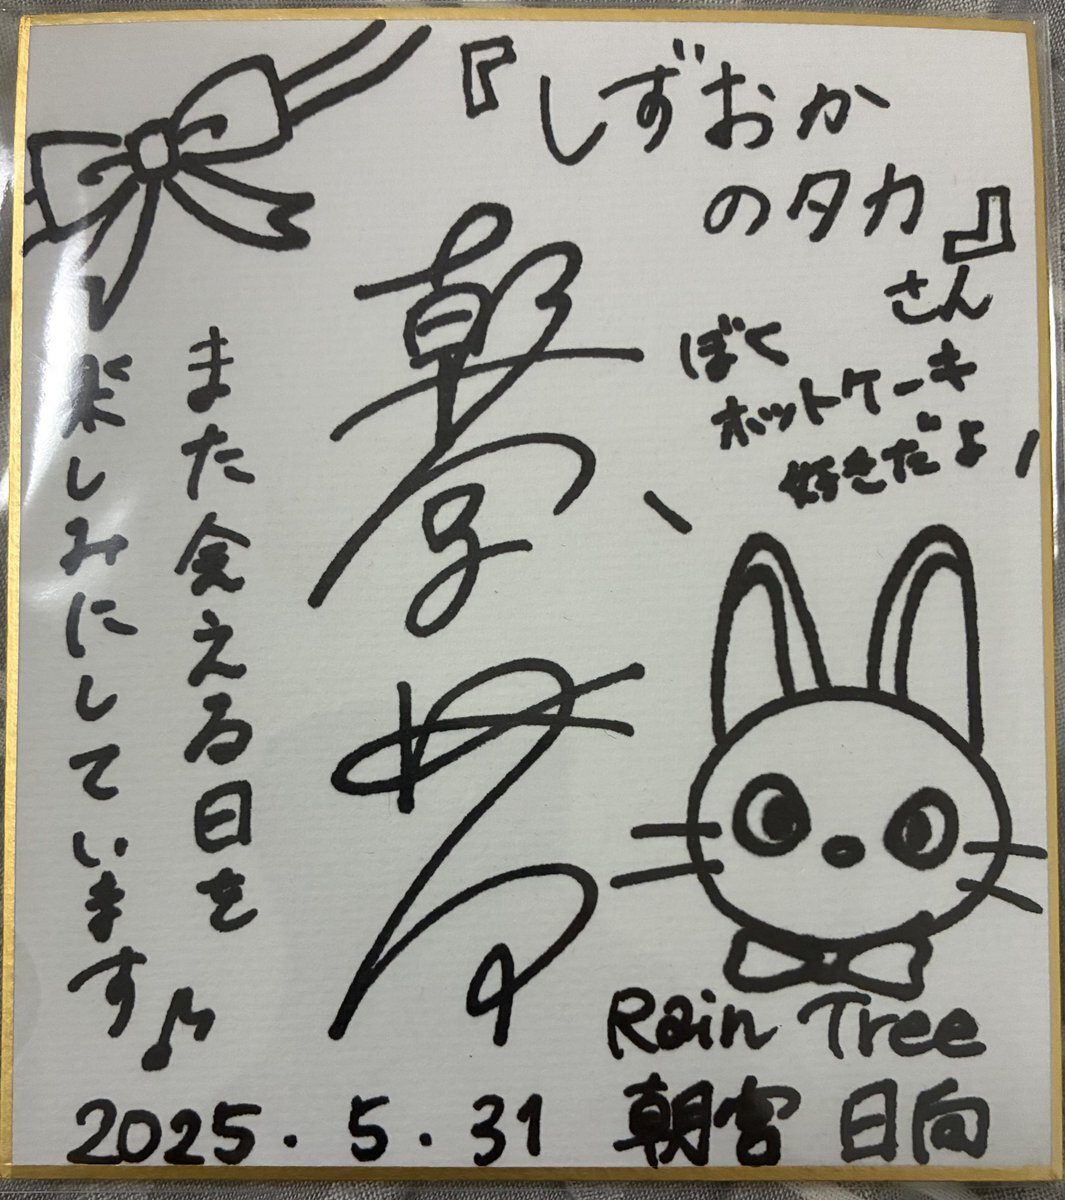 『しずおか
のタカ』
さん
ぼく
ホットケーキ
好きだよ
また会える日を
楽しみにしています♪
Rain Tree
朝宮 日向
2025.5.31